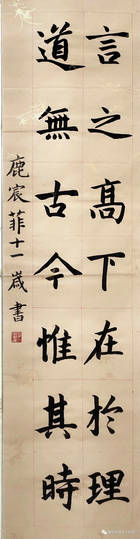 言之高下在於理
道無古今惟其時
鹿宸菲十一歲書